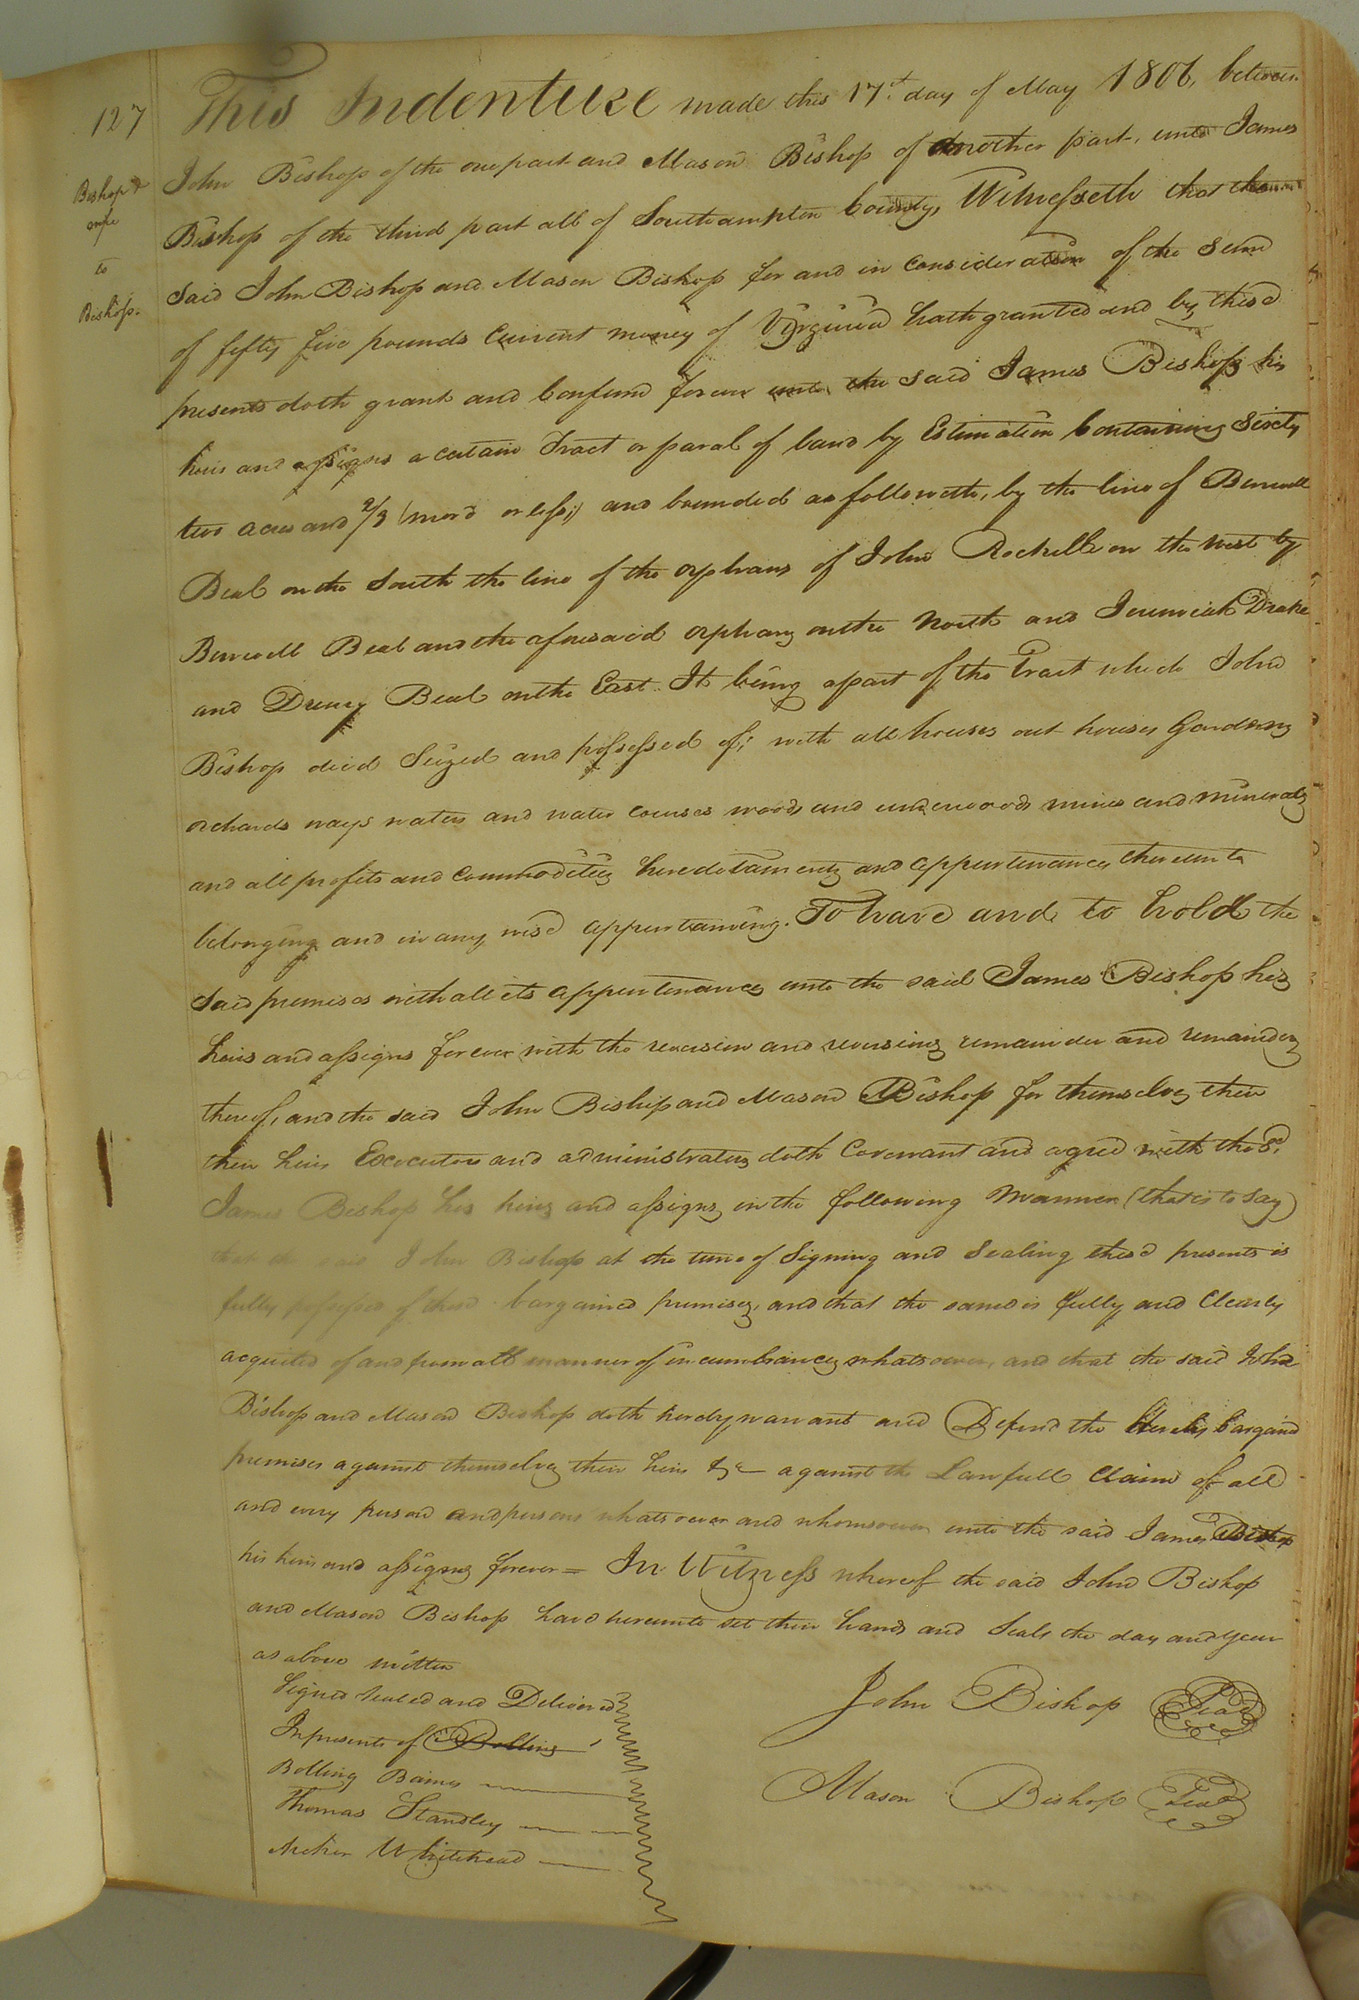 127
Bishop &
to
Bishop.
This Indenture made this 17t. day of May 1806, between
John Bishop of the one part and Mason Bishop of another part, unto James
Bishop of the third part all of Southampton County, Witnesseth that the
said John Bishop and Mason Bishop for and in consideration of the sum
of fifty five pounds Current money of Virginia hath granted and by these
presents doth grant and Confirm forever unto the said James Bishop his
heirs and assigns a certain Tract or parcel of land by Estimation Containing Sixty
two acres and 2/3 (more or less;) and bounded as followeth, by the line of Burwell
Beal on the South the line of the orphans of John Rochelle on the West by
Burwell Beal and the aforesaid orphans on the North and Jeremiah Drake
and Drury Beal on the East. It being apart of the Tract which John
Bishop died Seized and possessed of; with all houses out houses Gardens
orchards ways waters and water courses woods and underwoods mines and minerals
and all profits and commodities hereditaments and appurtenances thereunto
belonging and in any wise appurtaining. To have and to hold the
said premises with all its appurtenances unto the said James Bishop his
heirs and assigns forever with the reversion and reversions remainder and remainders
thereof, and the said John Bishop and Mason Bishop for themselves their
their heirs Executors and administrators doth Covenant and agree with the sd.
James Bishop his heirs and assigns in the following Manner (that is to say)
that the said John Bishop at the time of Signing and Sealing these presents is
fully possessed of these bargained premises, and that the same is fully and Clearly
acquited of and from all manner of incumbrances whatsoever, and that the said John
Bishop and Mason Bishop doth hereby warrant and Defend the hereby bargaind
premises against themselves their heirs &c against the Lawfull Claim of all
and every person and persons whatsoever and whomsoever unto the said James Bishop
his heirs and assigns forever = In Witness whereof the said John Bishop
and Mason Bishop have hereunto set their hands and Seals the day and year
as above written
Signed Sealed and Delivered
In presents of Bolling
Bolling Barnes
Thomas Standley
Archer Whitehead
John Bishop Seal
Mason Bishop Seal